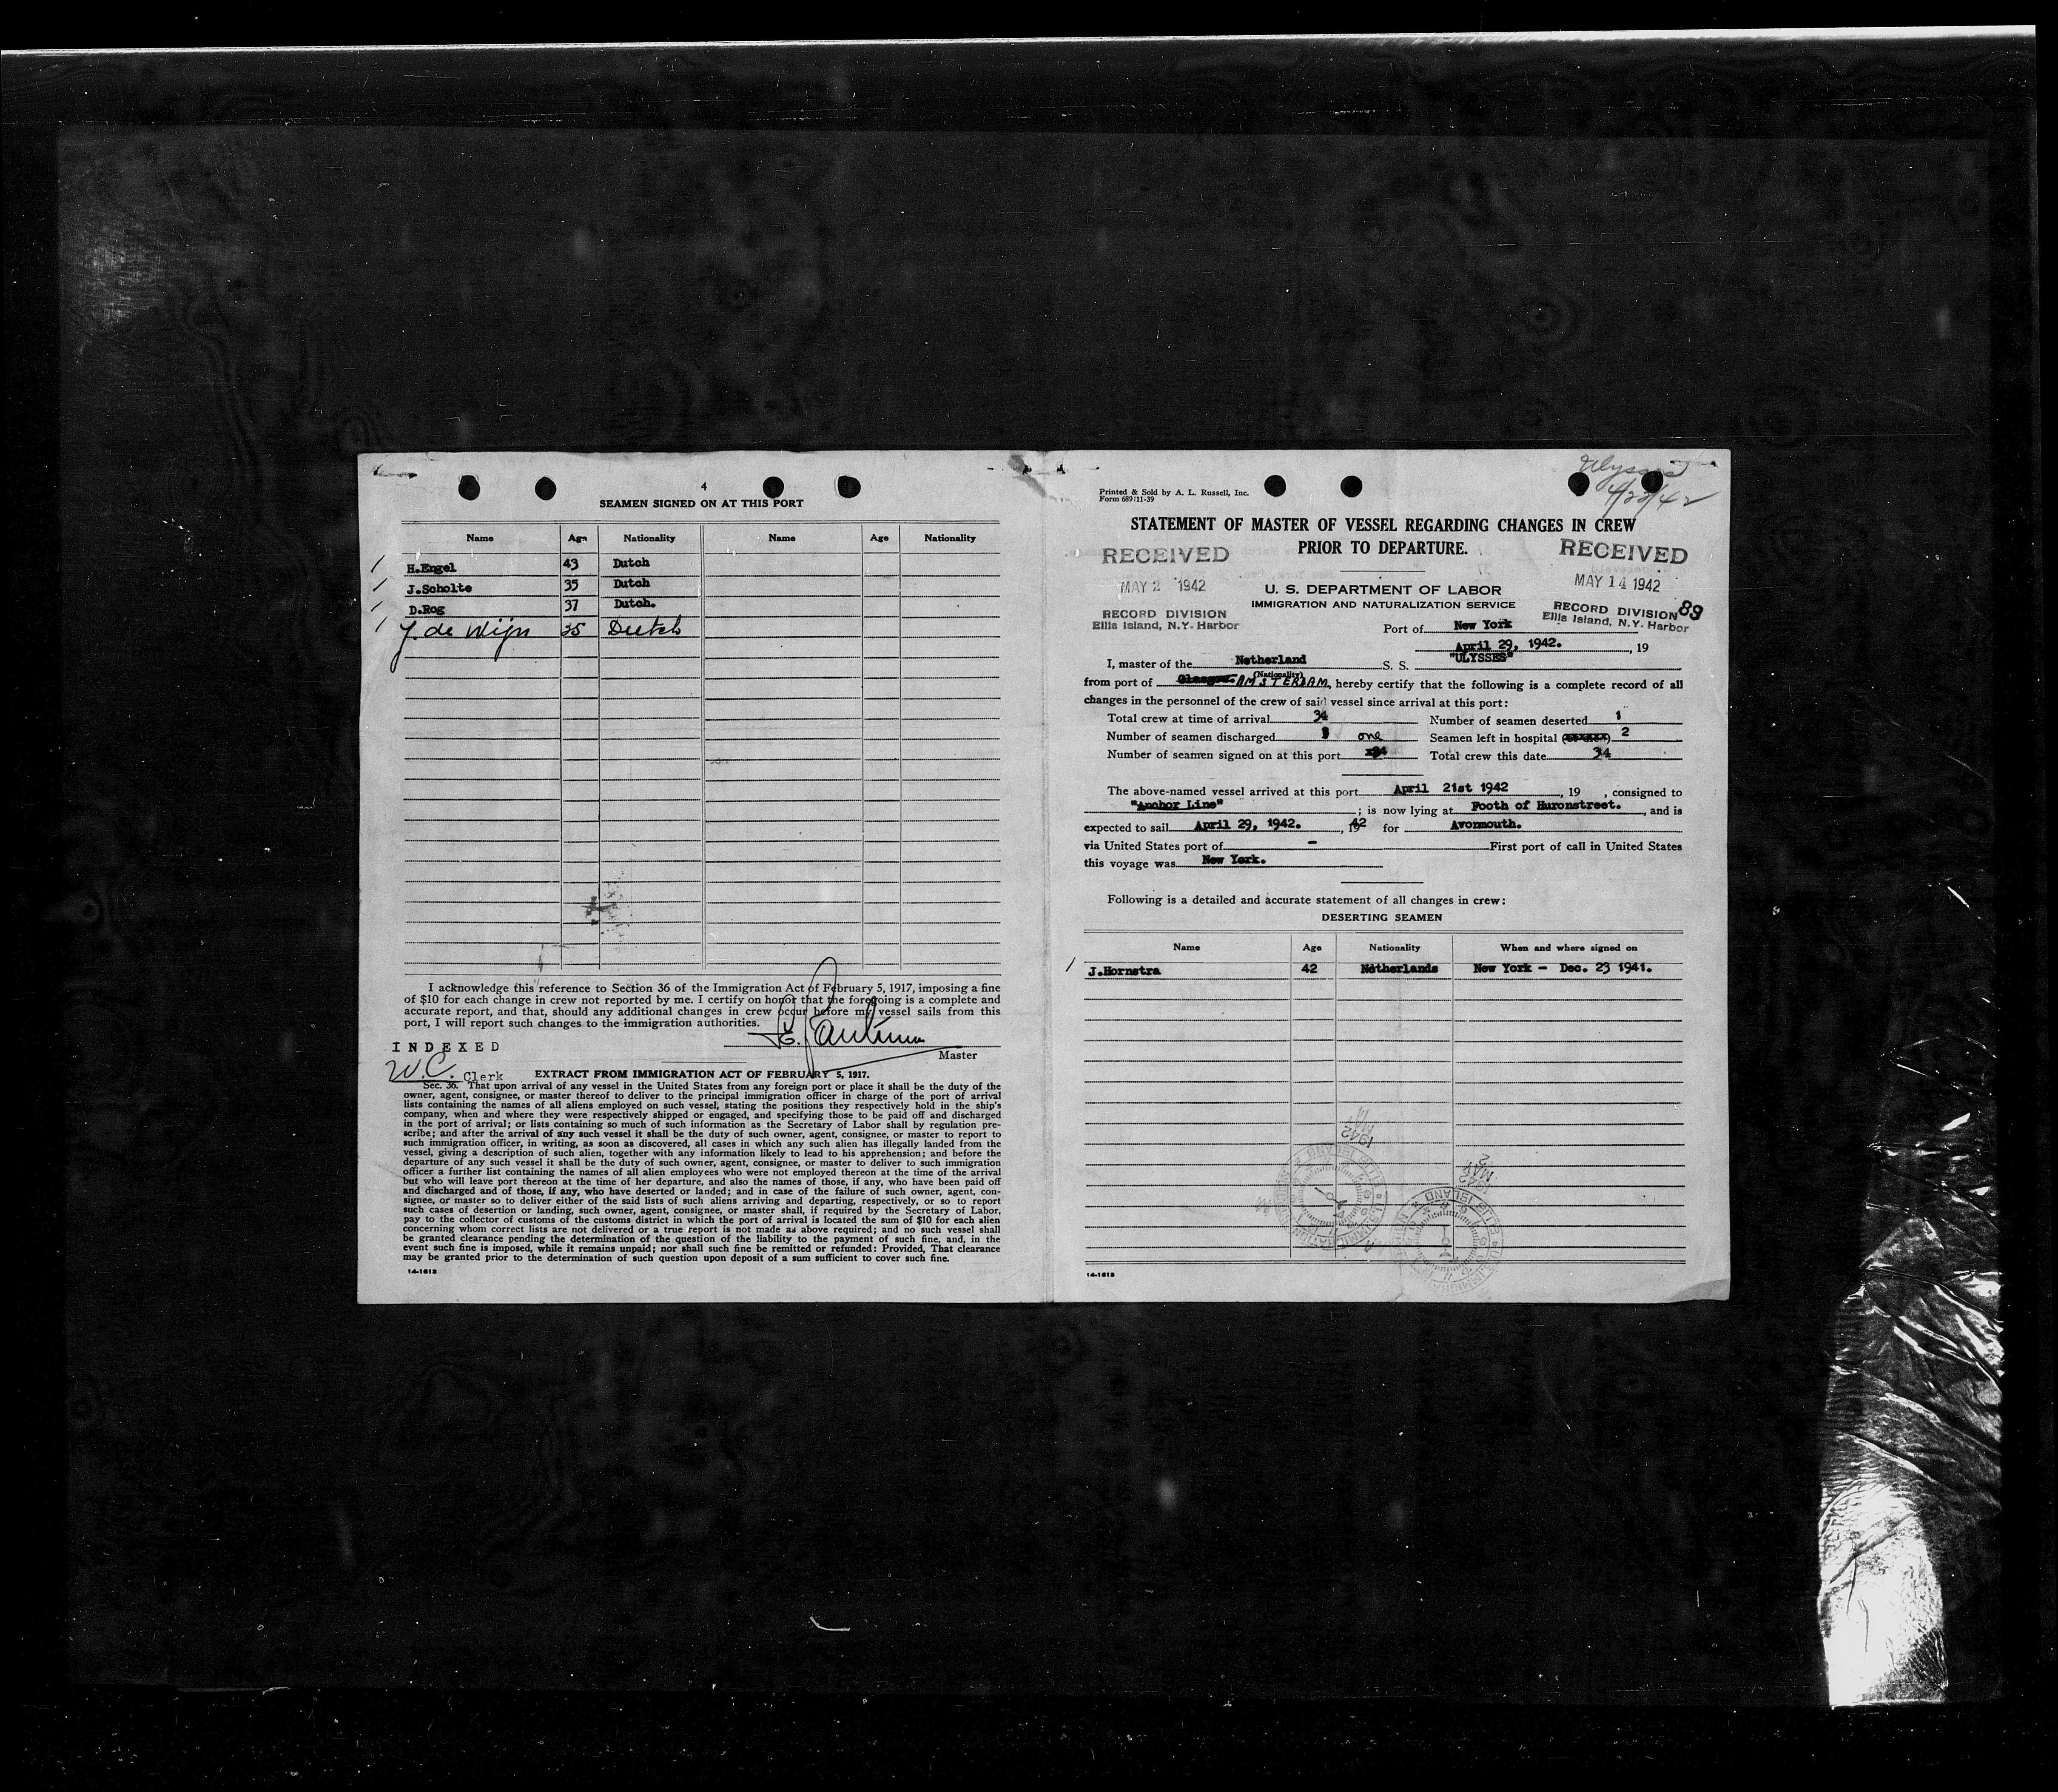 4
SEAMEN SIGNED ON AT THIS PORT
Name Age Nationality Name Age Nationality
H.Engel 43 Dutch
J.Scholte 35 Dutch
D.Rog 37 Dutch.
J. de Wijn 35 Dutch
I acknowledge this reference to Section 36 of the Immigration Act of February 5, 1917, imposing a fine
of $10 for each change in crew not reported by me. I certify on honor that the foregoing is a complete and
accurate report, and that, should any additional changes in crew occur before my vessel sails from this
port, I will report such changes to the immigration authorities.
INDEXED
Master
W.C. Clerk
EXTRACT FROM IMMIGRATION ACT OF FEBRUARY 5, 1917.
Sec. 36. That upon arrival of any vessel in the United States from any foreign port or place it shall be the duty of the
owner, agent, consignee, or master thereof to deliver to the principal immigration officer in charge of the port of arrival
lists containing the names of all aliens employed on such vessel, stating the positions they respectively hold in the ship's
company, when and where they were respectively shipped or engaged, and specifying those to be paid off and discharged
in the port of arrival; or lists containing so much of such information as the Secretary of Labor shall by regulation pre-
scribe; and after the arrival of any such vessel it shall be the duty of such owner, agent, consignee, or master to report to
such immigration officer, in writing, as soon as discovered, all cases in which any such alien has illegally landed from the
vessel, giving a description of such alien, together with any information likely to lead to his apprehension; and before the
departure of any such vessel it shall be the duty of such owner, agent, consignee, or master to deliver to such immigration
officer a further list containing the names of all alien employees who were not employed thereon at the time of the arrival
but who will leave port thereon at the time of her departure, and also the names of those, if any, who have been paid off
and discharged and of those, if any, who have deserted or landed; and in case of the failure of such owner, agent, con-
signee, or master so to deliver either of the said lists of such aliens arriving and departing, respectively, or so to report
such cases of desertion or landing, such owner, agent, consignee, or master shall, if required by the Secretary of Labor,
pay to the collector of customs of the customs district in which the port of arrival is located the sum of $10 for each alien
concerning whom correct lists are not delivered or a true report is not made as above required; and no such vessel shall
be granted clearance pending the determination of the question of the liability to the payment of such fine, and, in the
event such fine is imposed, while it remains unpaid; nor shall such fine be remitted or refunded: Provided, That clearance
may be granted prior to the determination of such question upon deposit of a sum sufficient to cover such fine.
14-1613
Ulysses
4/22/42
Printed & Sold by A. L. Russell, Inc.
Form 689 11-39
STATEMENT OF MASTER OF VESSEL REGARDING CHANGES IN CREW
PRIOR TO DEPARTURE.
RECEIVED
MAY 2 1942
RECORD DIVISION
Ellis Island, N.Y. Harbor
RECEIVED
MAY 14 1942
RECORD DIVISION
Ellis Island, N.Y. Harbor
89
U. S. DEPARTMENT OF LABOR
IMMIGRATION AND NATURALIZATION SERVICE
Port of New York
April 29, 1942. , 19
I, master of the Netherland S. S. "ULYSSES"
(Nationality)
from port of Glasgow. AMSTERDAM, hereby certify that the following is a complete record of all
changes in the personnel of the crew of said vessel since arrival at this port:
Total crew at time of arrival 34 Number of seamen deserted 1
Number of seamen discharged one Seamen left in hospital 2
Number of seamen signed on at this port 4 Total crew this date 34
The above-named vessel arrived at this port April 21st 1942 , 19 , consigned to
"Anchor Line" ; is now lying at Footh of Huronstreet. , and is
expected to sail April 29, 1942. , 1942 for Avonmouth.
via United States port of - First port of call in United States
this voyage was New York.
Following is a detailed and accurate statement of all changes in crew:
DESERTING SEAMEN
Name Age Nationality When and where signed on
J.Hornstra 42 Netherlands New York - Dec. 23 1941.
14-1613